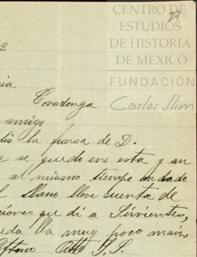 CENTRO DE
ESTUDIOS
DE HISTORIA
DE MEXICO
FUNDACIÓN
Carlos Slim
27
2
ia
Covadonga
amigo
la fuerza de D.
se quedo en esta y an
al mismo tiempo
llame cuenta de
iones que di a Sirvientes,
eda va muy poco mais,
Otto P. S.